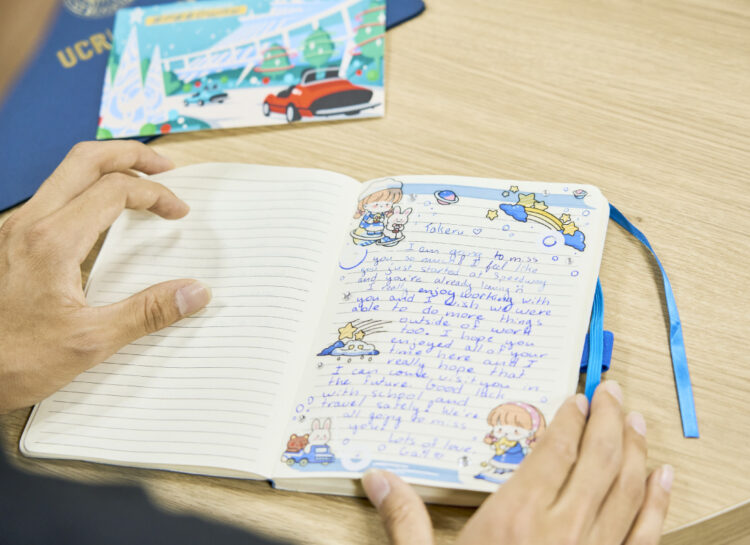 UCR
Takeru ♡
I am going to miss
you so much! I feel like
you just started at Speedway
and you're already leaving
I really enjoy working with
you and I wish we were
able to do more things
outside of work
too. I hope you
enjoyed all of your
time here and I
really hope that
I can come visit you in
the future. Good luck
with school and
travel safely! We're
all going to miss
you!!
Lots of love,